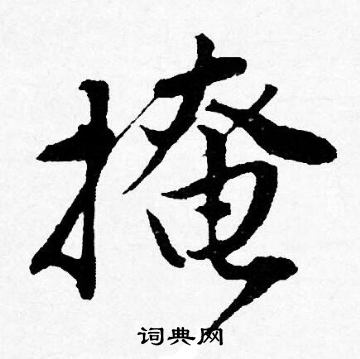 掩
词典网